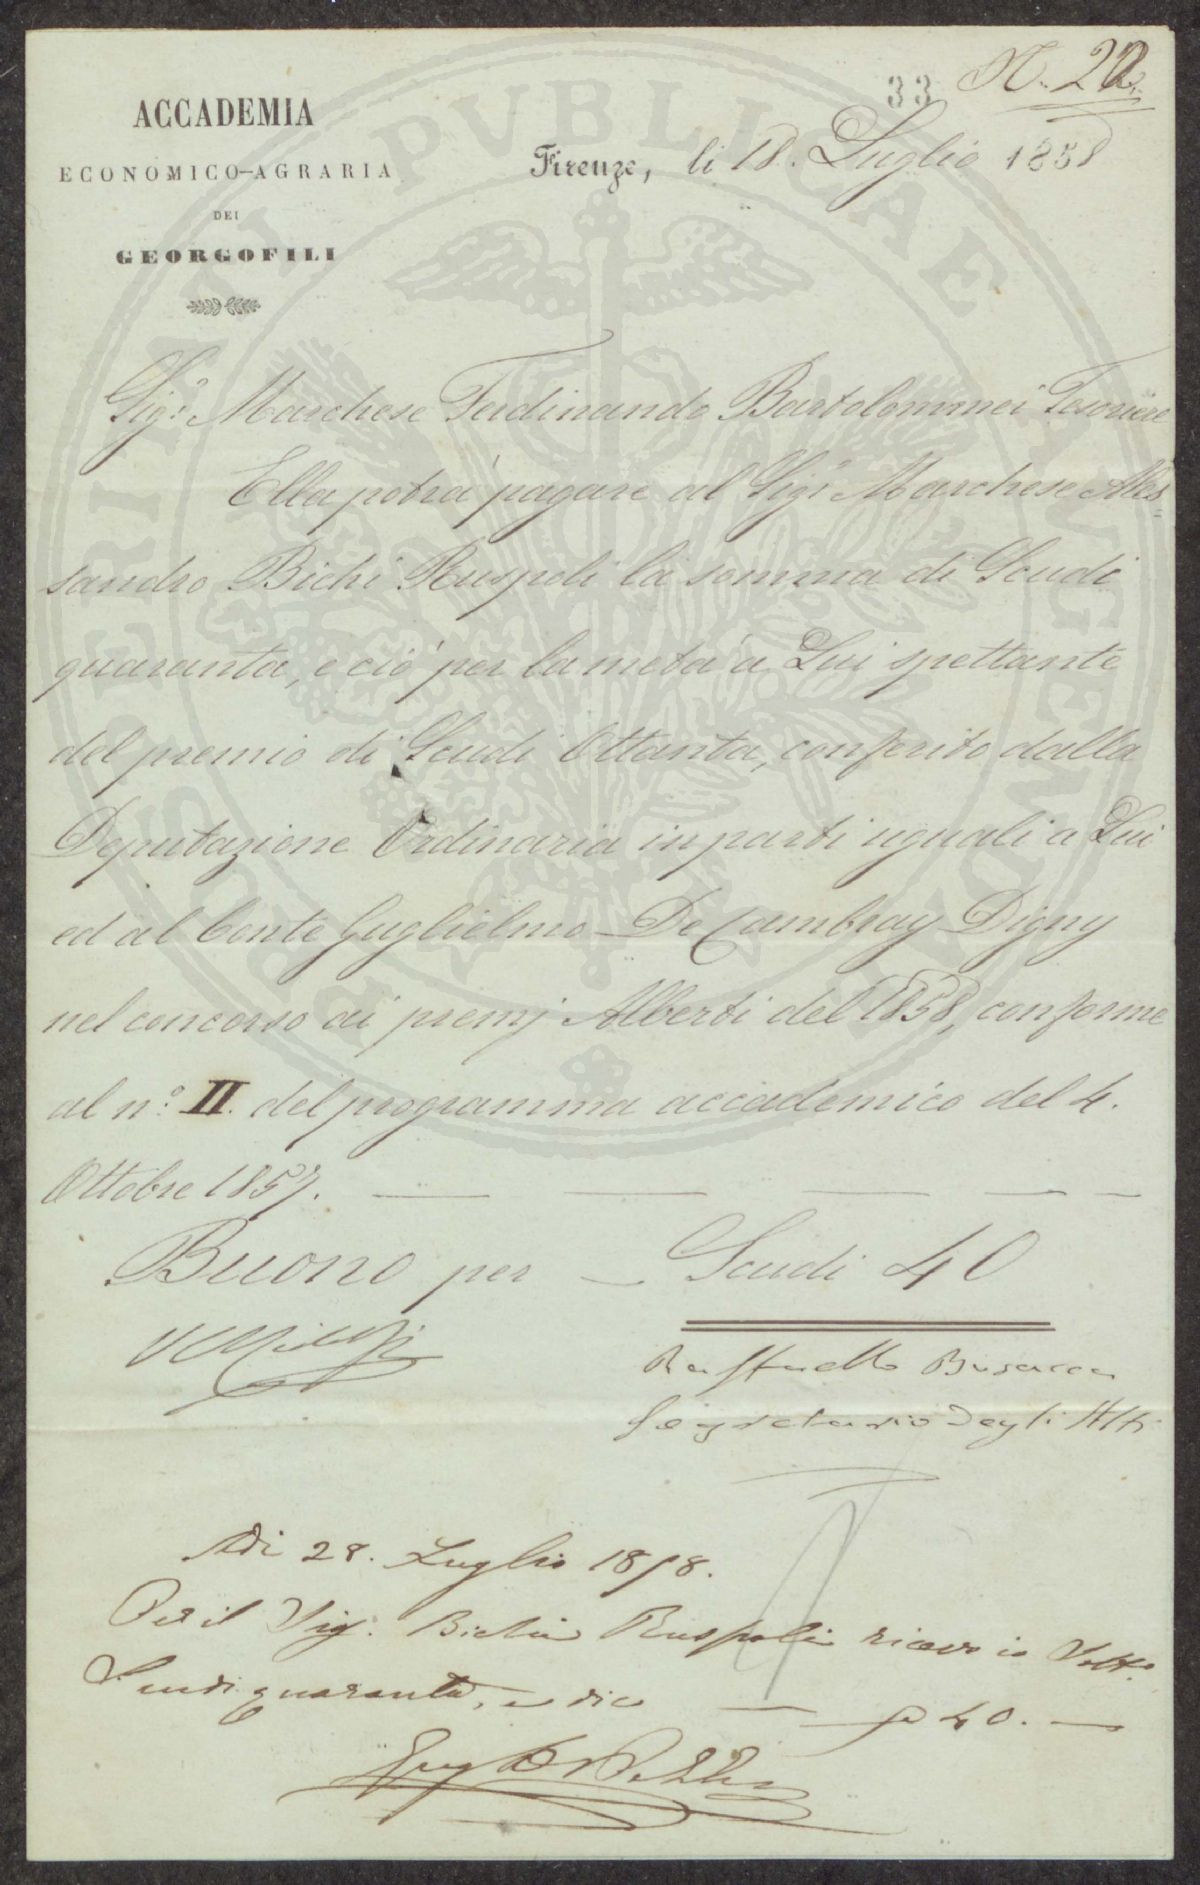 33 N. 22.
ACCADEMIA
ECONOMICO-AGRARIA
DEI
GEORGOFILI
Firenze, li 18. Luglio 1858
PROSPERITATI PVBLICAE AVGENDAE
Sigr. Marchese Ferdinando Bartolommei Tesoriere
Ella potrà pagare al Sigr. Marchese Ales=
sandro Bichi Ruspoli la somma di Scudi
quaranta, e ciò per la metà a Lui spettante
del premio di Scudi Ottanta, conferito dalla
Deputazione Ordinaria in parti uguali a Lui
ed al Conte Guglielmo De Cambray Digny
nel concorso ai premj Alberti del 1858, conforme
al n.° II. del programma accademico del 4.
Ottobre 1857.
Buono per — Scudi 40
Raffaello Busacca
Segretario degli Atti
Adi 28. Luglio 1858.
Per il Sig. Bichi Ruspoli ricevo io Sotto
Scudi quaranta, e dico — 40. —